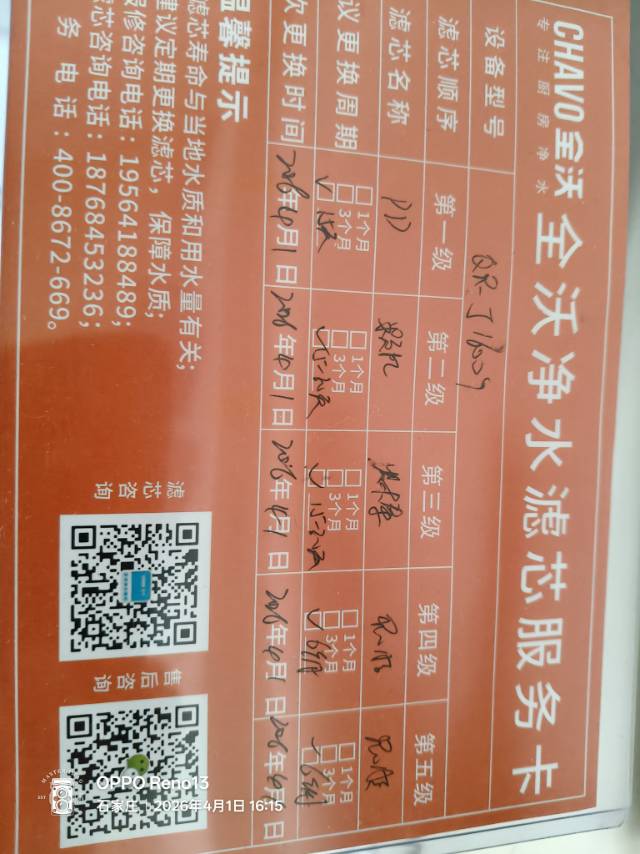 CHAVO 全沃
专注厨房净水
全沃净水滤芯服务卡
设备型号 QR-J1600g
滤芯顺序 第一级 第二级 第三级 第四级 第五级
滤芯名称 PP
议更换周期 1个月 1个月 1个月 1个月 1个月
3个月 3个月 3个月 3个月 3个月
15天 15-20天 15-20天 6个月 6个月
次更换时间 2026年4月1日 2026年4月1日 2026年4月1日 2026年4月1日 2026年4月1日
温馨提示
滤芯寿命与当地水质和用水量有关;
建议定期更换滤芯, 保障水质;
报修咨询电话: 19564188489;
滤芯咨询电话: 18768453236;
务电话: 400-8672-669。
滤芯咨询
售后咨询
OPPO Reno13
石家庄 | 2026年4月1日 16:15